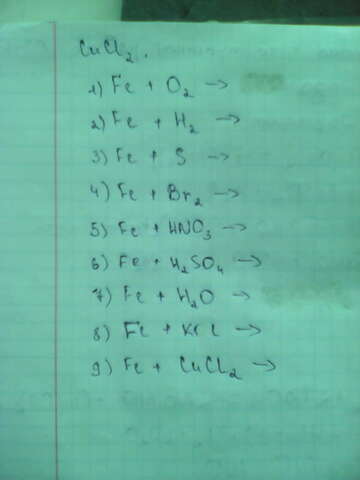 CuCl₂.
1) Fe + O₂ →
2) Fe + H₂ →
3) Fe + S →
4) Fe + Br₂ →
5) Fe + HNO₃ →
6) Fe + H₂SO₄ →
7) Fe + H₂O →
8) Fe + KCl →
9) Fe + CuCl₂ →